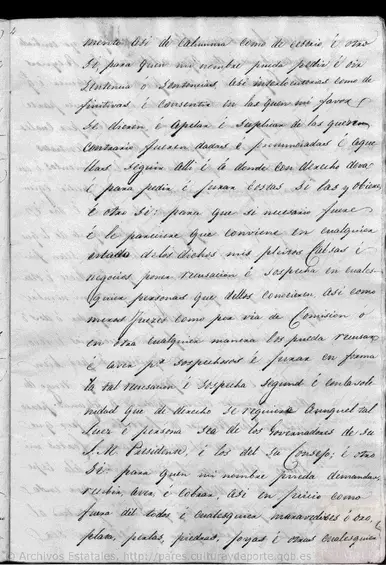 mento Asi de Calumnia como de cesorio é otro
Si para quen mi nombre pueda pedir é oir
Sentencia ó Sentencias, Asi interlocutorias como de
finitivas é consentir en las quen mi favor
Se dieren é Apelar é Suplicar de las que en
contrario fueren dadas é pronunciadas é aque
llas Seguir alli é á donde con derecho deva
é para pedir é jurar Costas Si las y obiere,
é otro Si para que si necesario fuere
é le pareciere que conviene en cualquier
estado de los dichos mis pleitos Causas é
negocios poner recusacion é sospecha en cuales
quier personas que dellos conocieren, Asi como
meros Juezes como por via de Comision o
en otra cualquier manera los pueda recusar
é aver p.r sospechosos é jurar en forma
la tal recusacion é sospecha Segund é con la sole
nidad que de derecho Se requiere Aunque el tal
Juez é persona Sea de los Governadores de Su
S. M. Presidente, é los del Su Consejo; é otro
Si para quen mi nombre pueda demandar,
recibir, aver, é cobrar, Asi en juicio como
fuera dél todos é cualesquier maravedises é oro,
plata, perlas, piedras, joyas é otras cualesquier
© Archivos Estatales, http://pares.culturaydeporte.gob.es